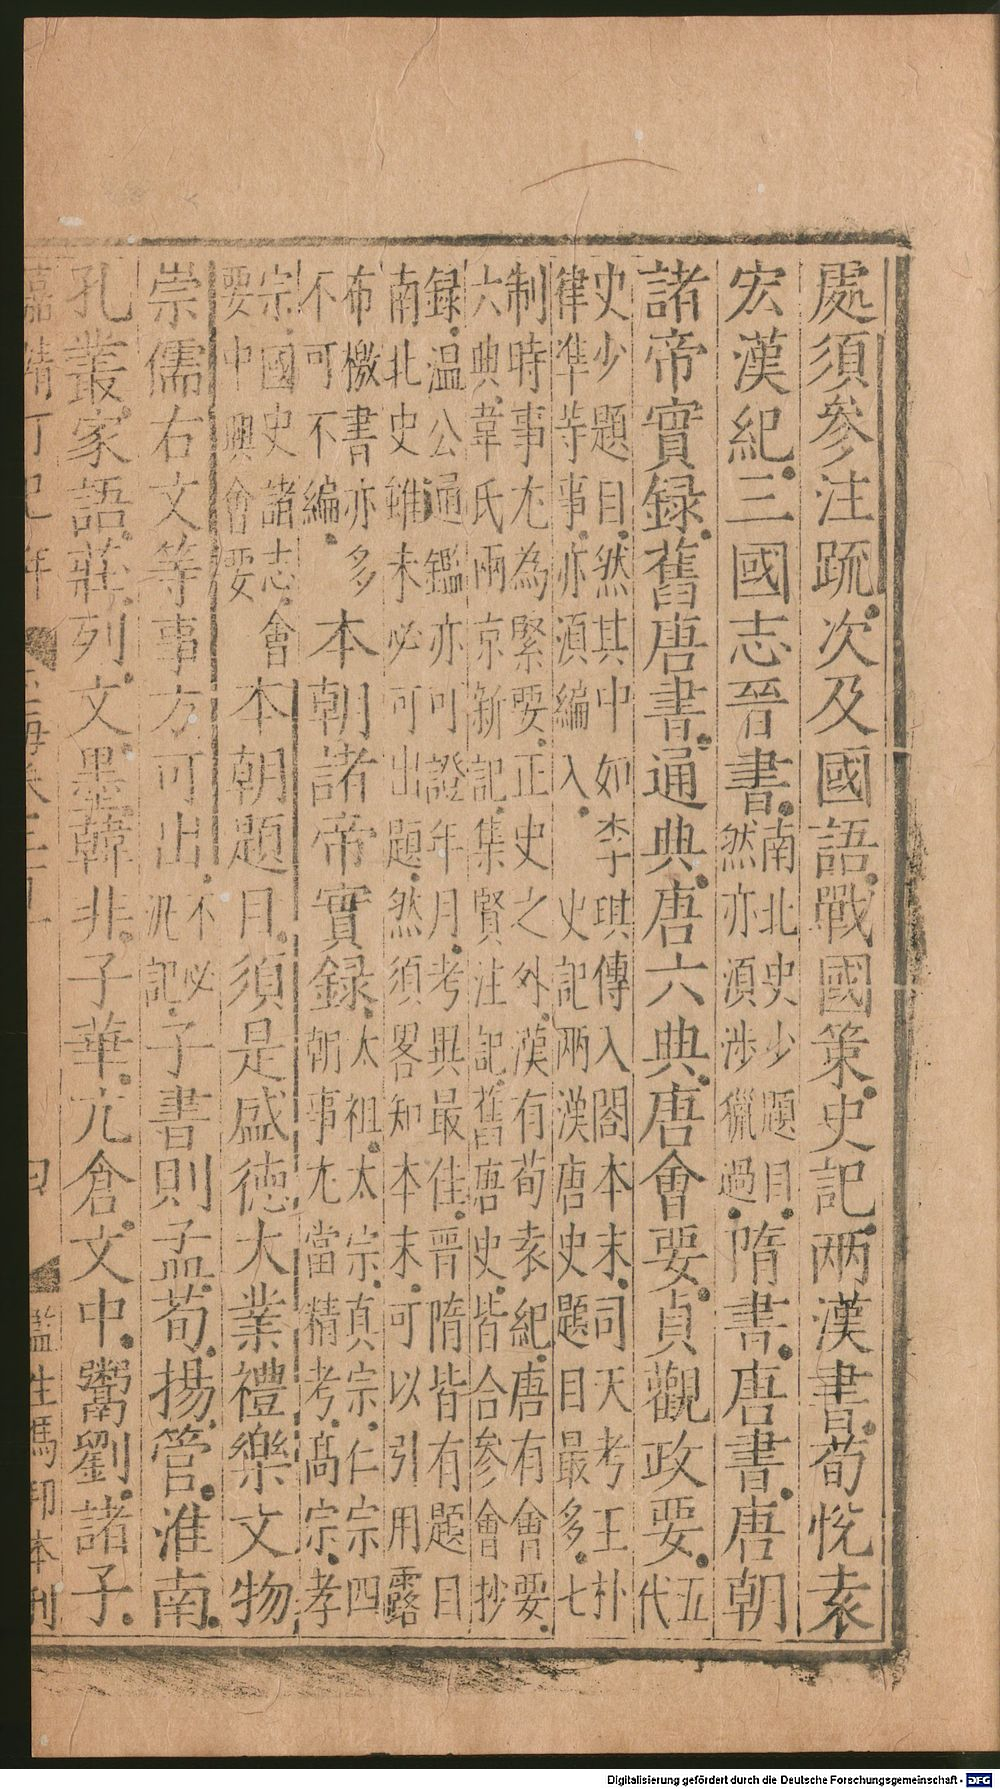 處須參注䟽次及國語戰國策史記兩漢書荀恱袁
宏漢紀三國志晉書南北史少題目然亦湏渉獵過隋書唐書唐朝
諸帝實録舊唐書通典唐六典唐會要貞觀政要五代
史少題目然其中如李琪傳入閤本末司天考王朴
律凖等事亦湏編入史記兩漢唐史題目最多七
制時事尤為緊要正史之外漢有荀袁紀唐有會要
六典韋氏兩京新記集賢注記舊唐史皆合參會抄
録温公通鑑亦可證年月考異最佳晉隋皆有題目
南北史雖未必可出題然須畧知本末可以引用露
布檄書亦多
不可不編本朝諸帝實録太祖太宗真宗仁宗四
朝事尤當精考髙宗孝
宗國史諸志會
要中興會要本朝題目須是盛德大業禮樂文物
崇儒右文等事方可出不必泛記子書則孟荀揚管淮南
孔叢家語莊列文墨韓非子華亢倉文中鬻劉諸子
嘉靖丁巳年
監生馮邦本刊
Digitalisierung gefördert durch die Deutsche Forschungsgemeinschaft - DFG